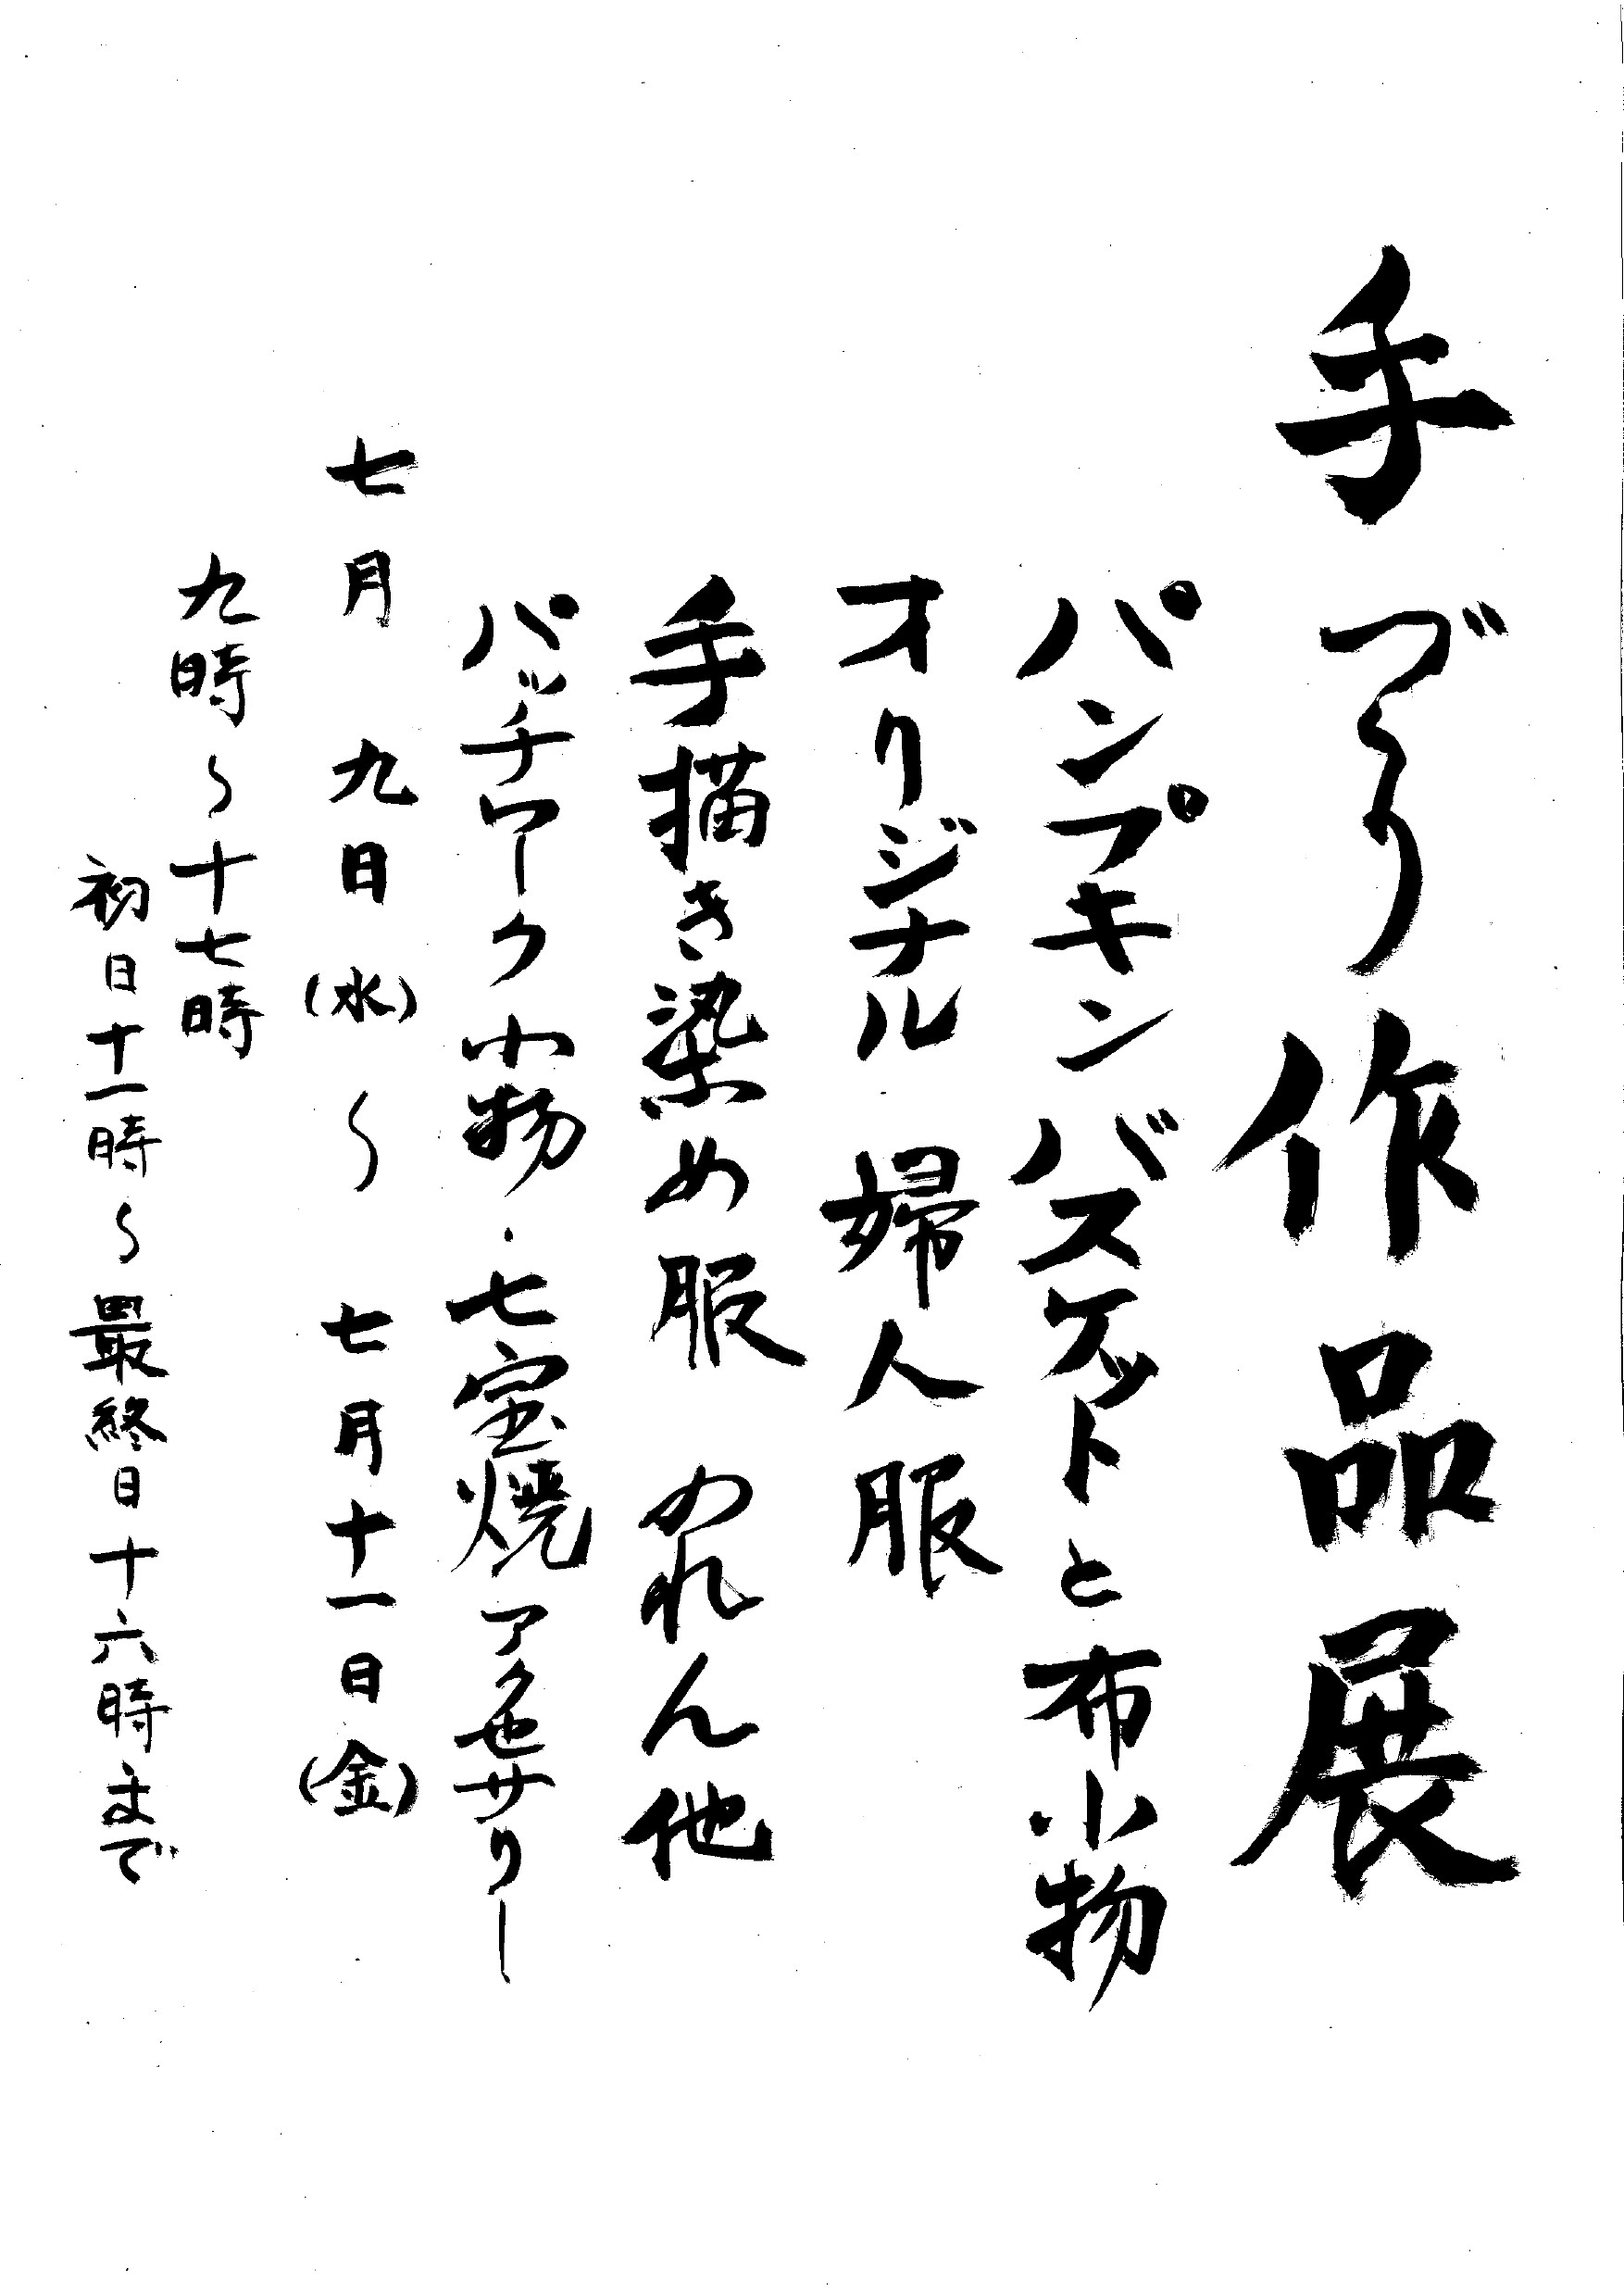 手づくり作品展
パンプキンバスケットと布小物
オリジナル 婦人服
手描き染め服 のれん他
パッチワーク小物・七宝焼アクセサリー
七月 九日(水)～ 七月十一日(金)
九時～十七時
初日十一時～最終日十六時まで